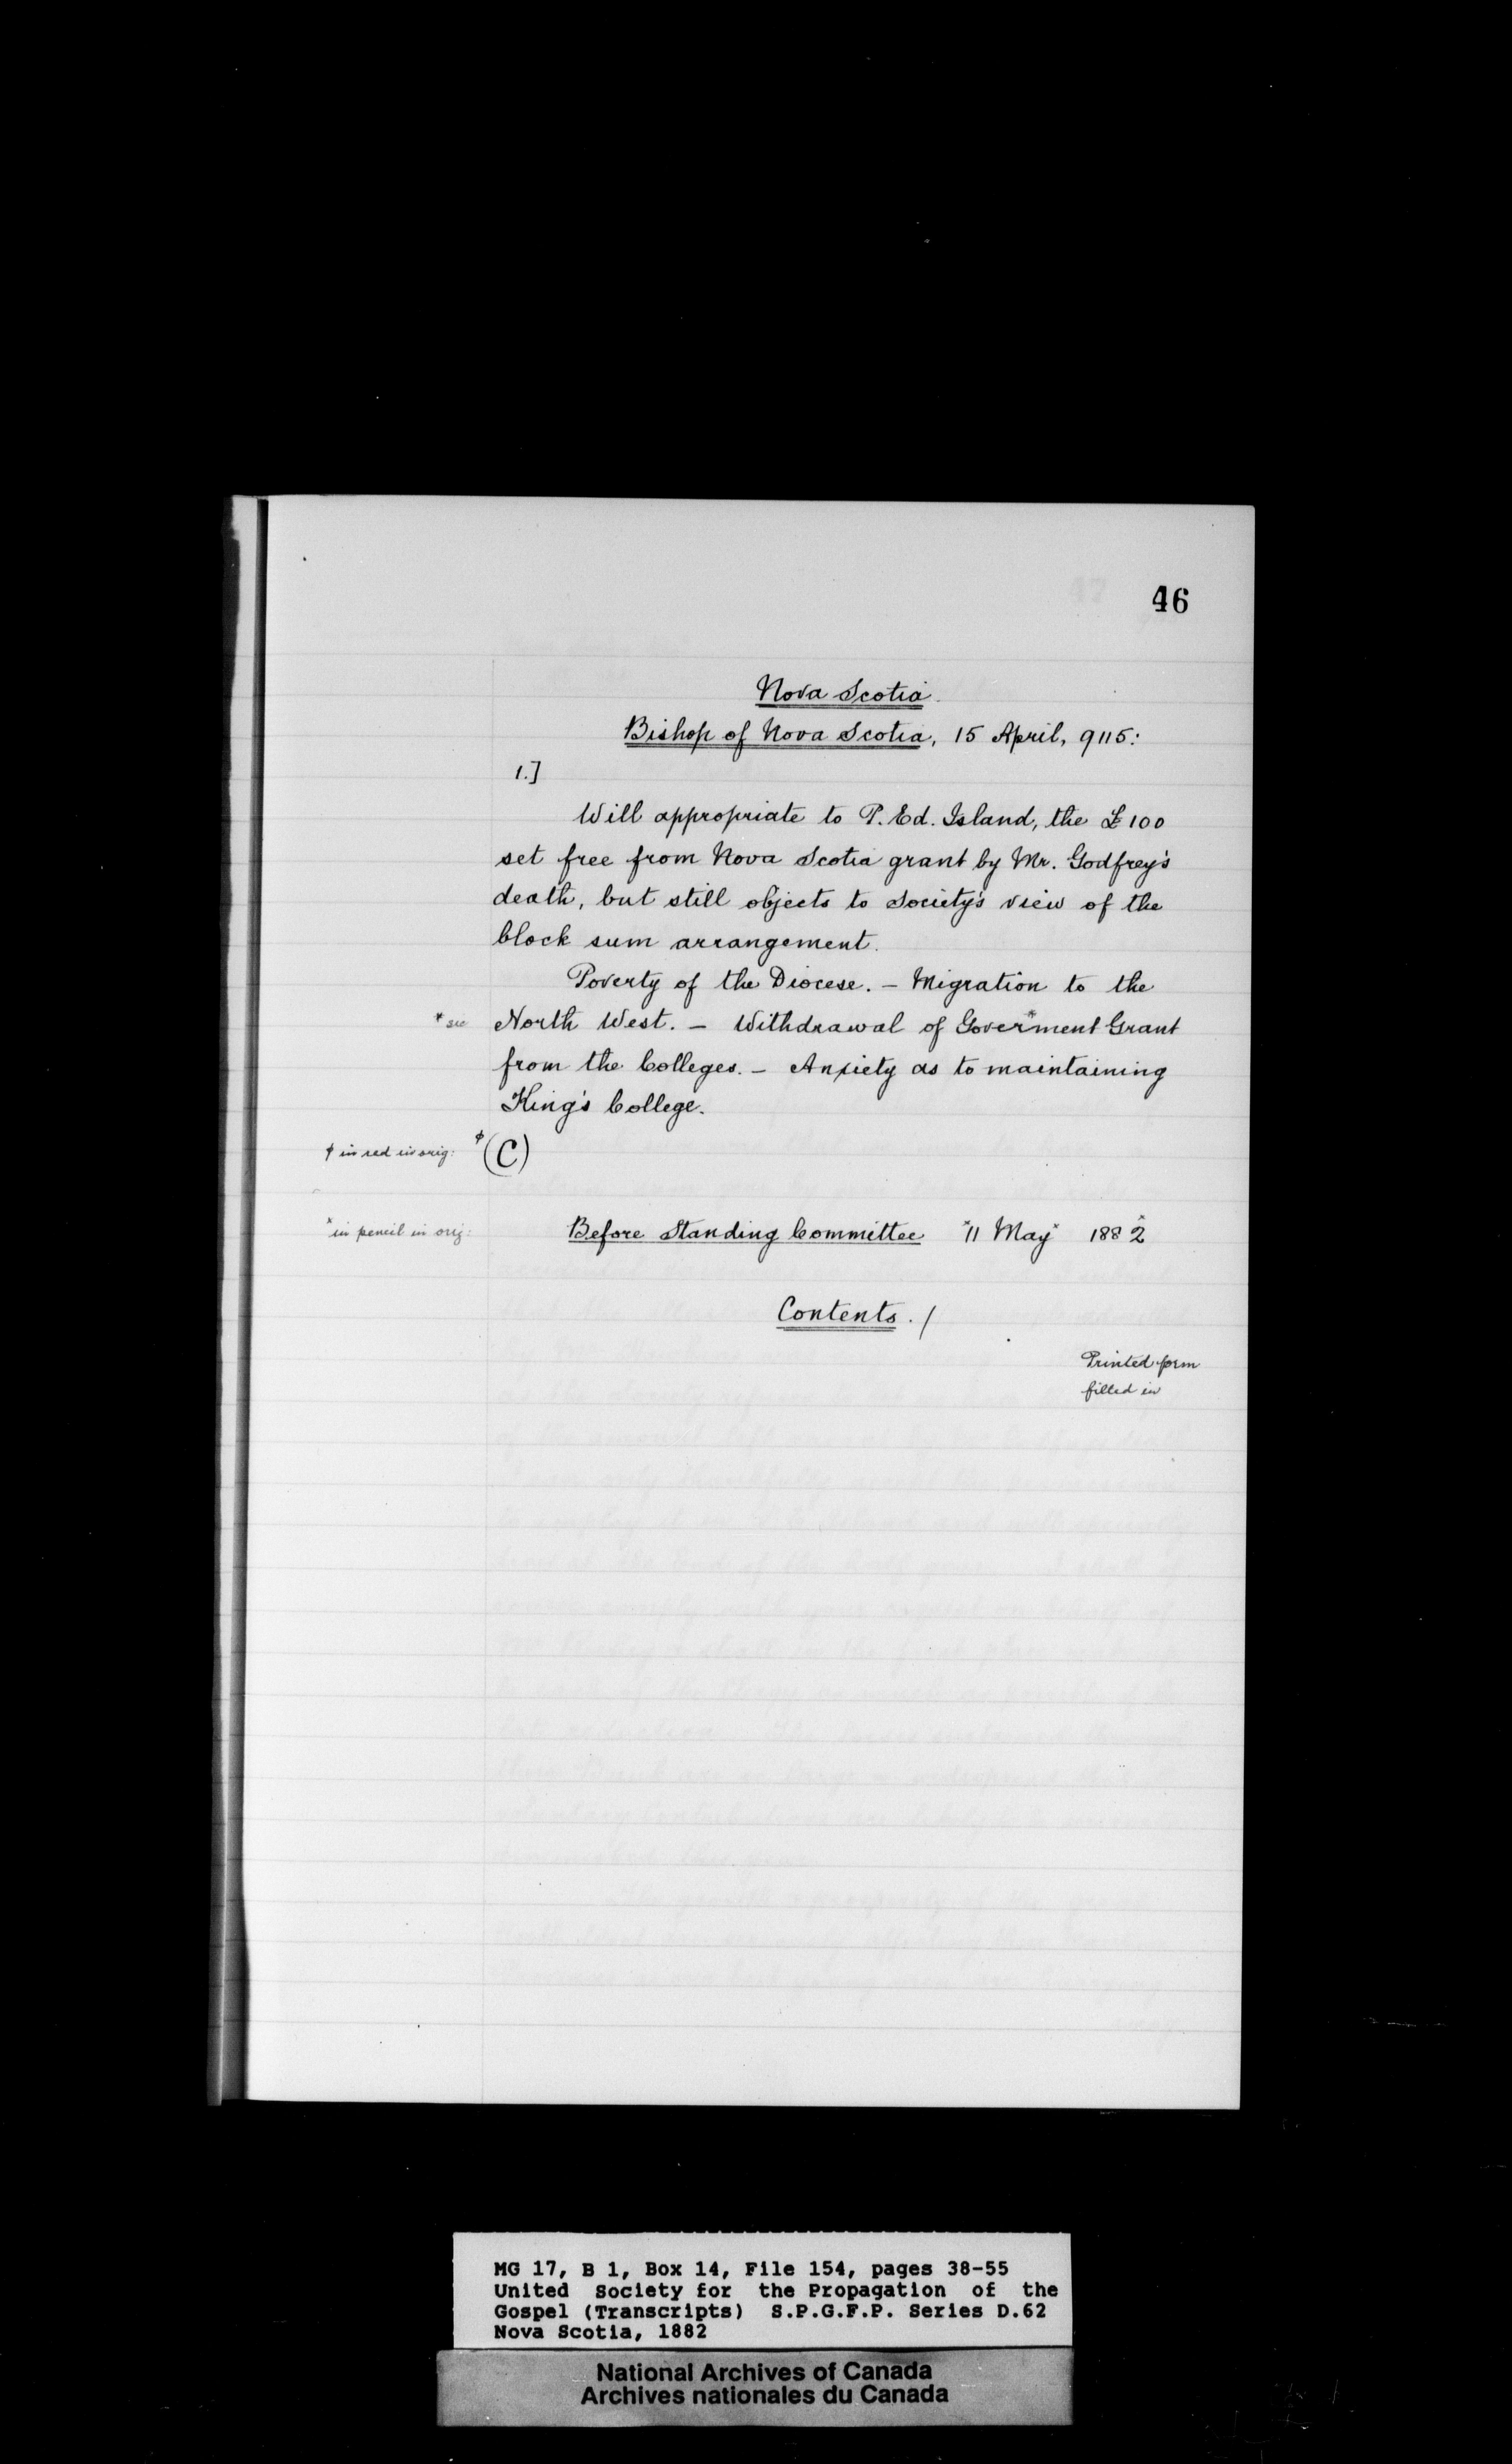 46
Nova Scotia.
Bishop of Nova Scotia, 15 April, 9115:
1.]
Will appropriate to P. Ed. Island, the £100
set free from Nova Scotia grant by Mr. Godfrey's
death, but still objects to Society's view of the
block sum arrangement.
Poverty of the Diocese. – Migration to the
* sic North West. – Withdrawal of Gover*ment Grant
from the Colleges. – Anxiety as to maintaining
King's College.
ϕ in red in orig: ϕ(C)
*in pencil in orig: Before Standing Committee *11 May* 188*2
Contents. /
Printed form
filled in
MG 17, B 1, Box 14, File 154, pages 38-55
United Society for the Propagation of the
Gospel (Transcripts) S.P.G.F.P. Series D.62
Nova Scotia, 1882
National Archives of Canada
Archives nationales du Canada